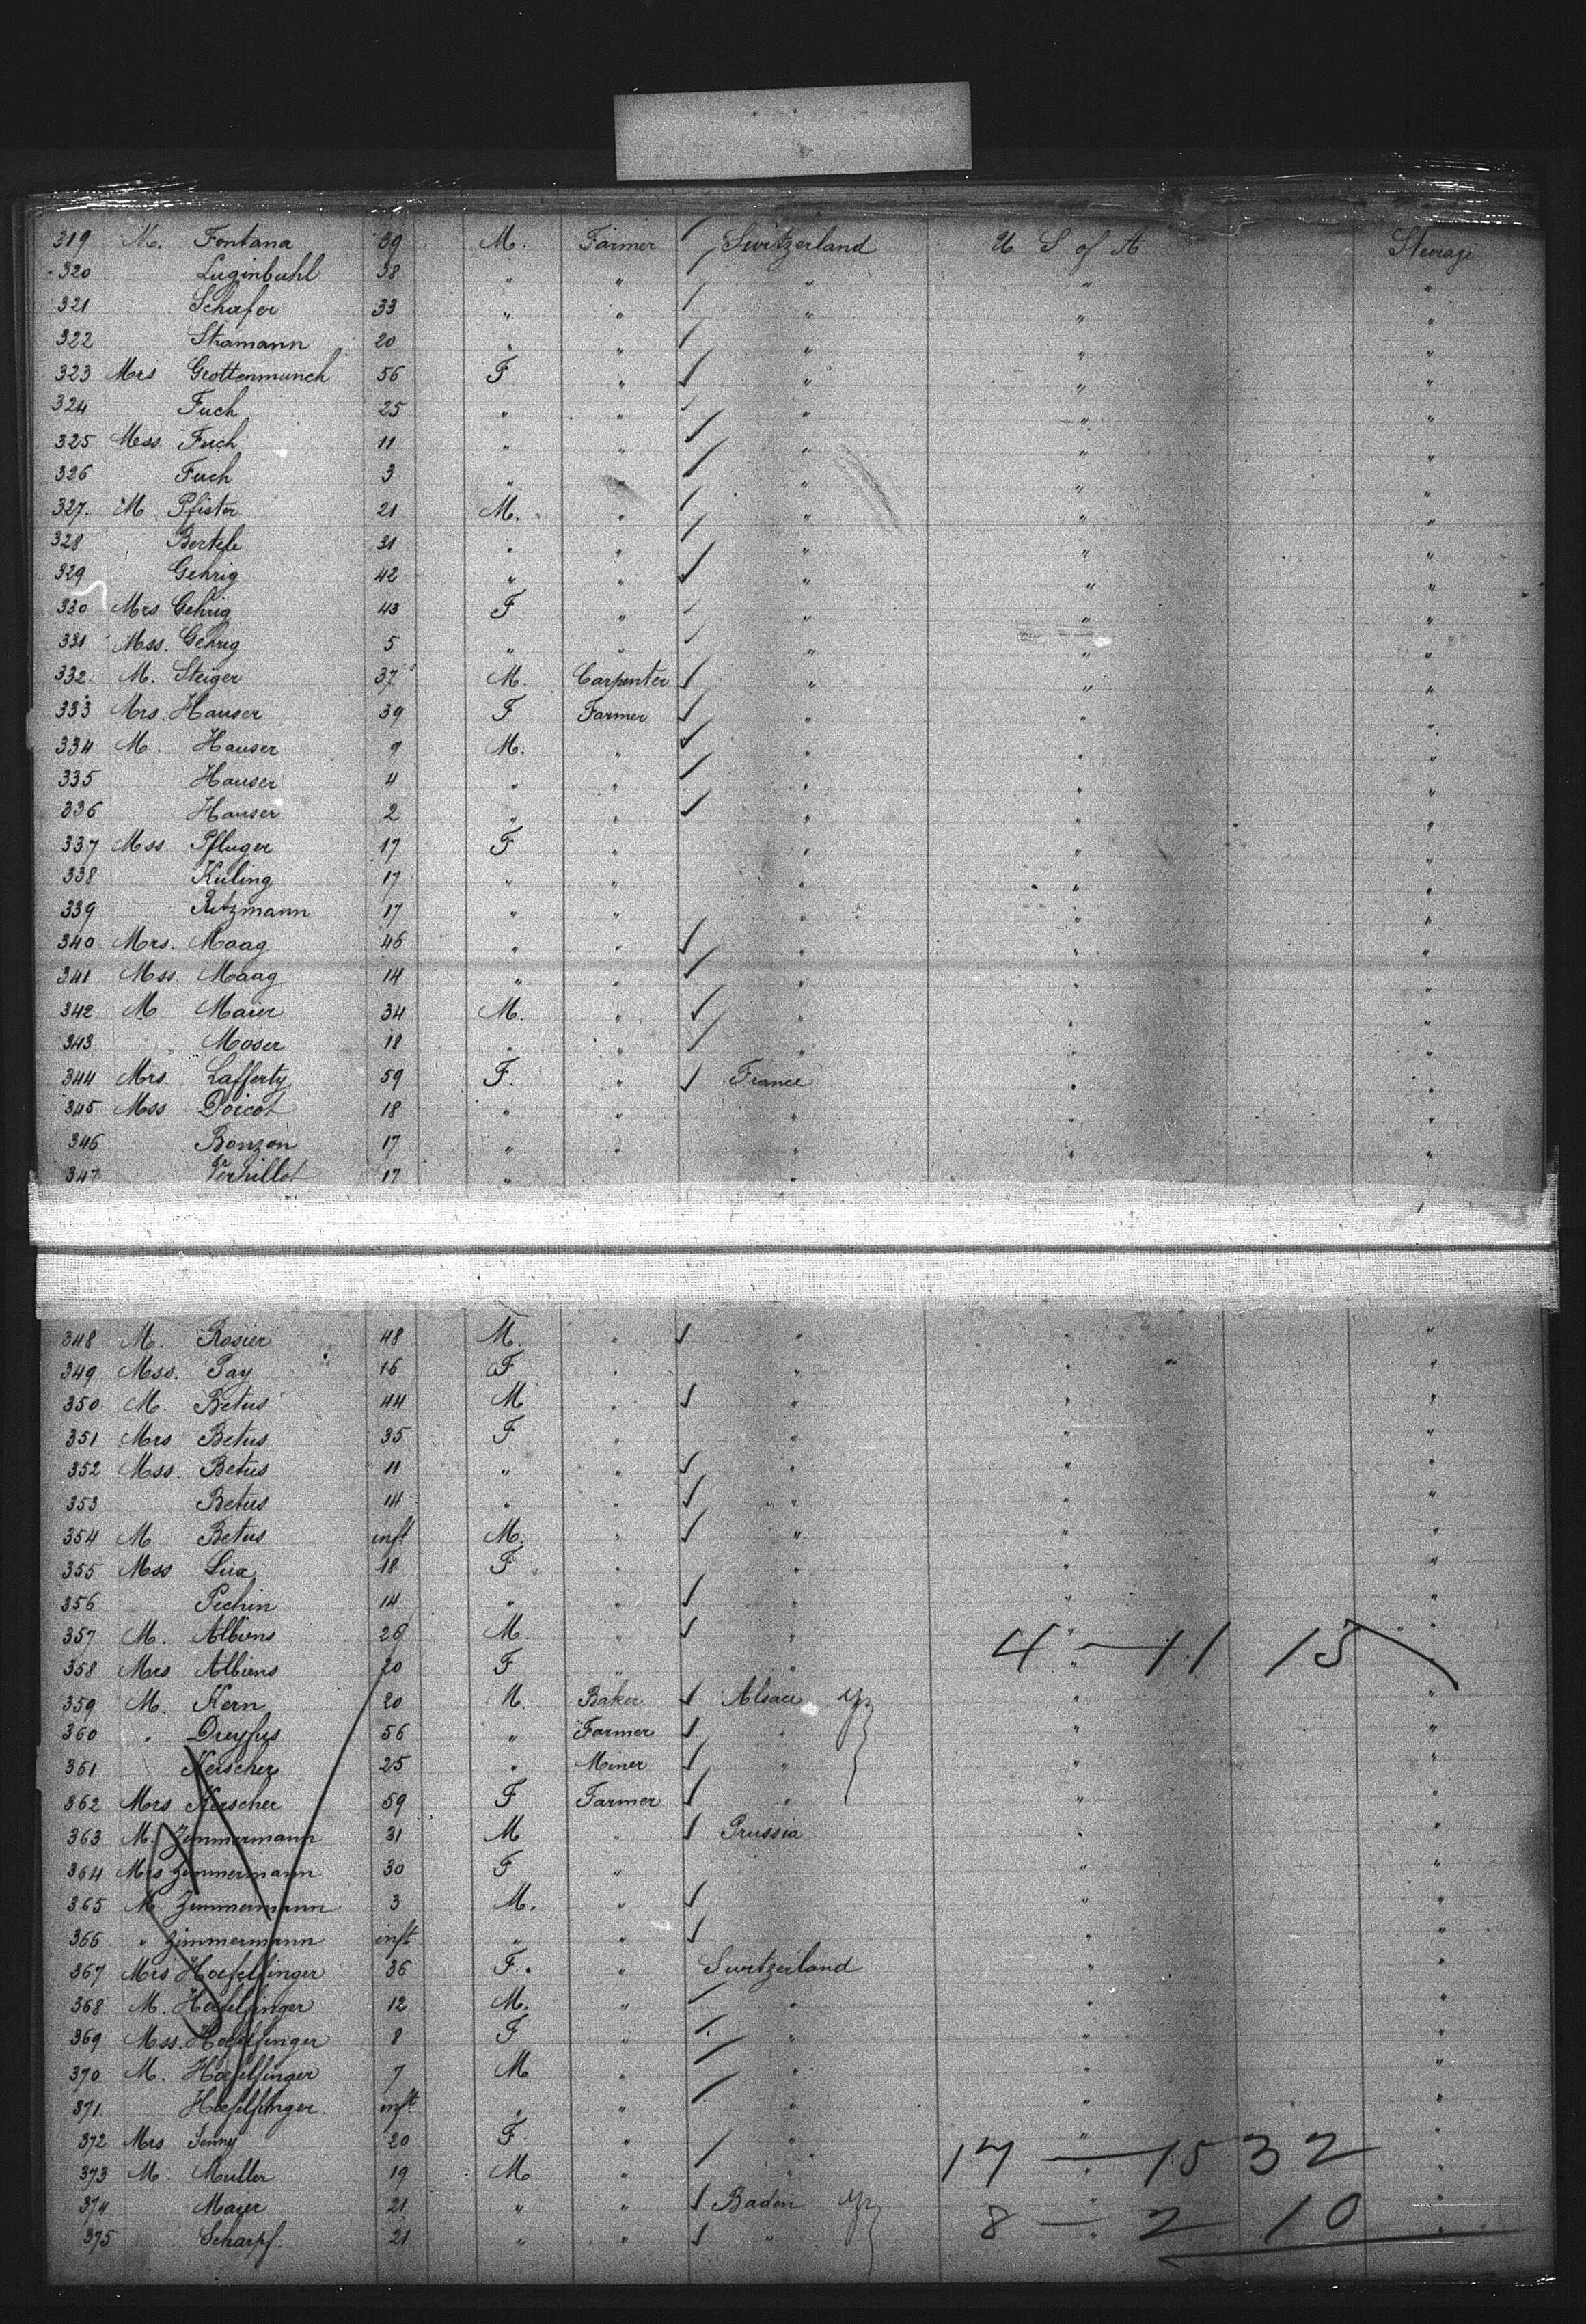 319 M. Fontana 39 M. Farmer Switzerland U S of A Steerage
320 Luginbuhl 38 " " " " "
321 Schafer 33 " " " " "
322 Stramann 20 " " " " "
323 Mrs Grottenmunch 56 F " " " "
324 Fuch 25 " " " " "
325 Mss Fuch 11 " " " " "
326 Fuch 3 " " " " "
327. M. Pfister 21 M. " " " "
328 Bertele 31 " " " " "
329 Gehrig 42 " " " " "
330 Mrs Gehrig 43 F " " " "
331 Mss. Gehrig 5 " " " " "
332. M. Steiger 37 M. Carpenter " " "
333 Mrs. Hauser 39 F Farmer " " "
334 M. Hauser 9 M. " " " "
335 Hauser 4 " " " " "
336 Hauser 2 " " " " "
337 Mss. Pfluger 17 F " " " "
338 Küling 17 " " " " "
339 Retzmann 17 " " " " "
340 Mrs. Maag 46 " " " " "
341 Mss. Maag 14 " " " " "
342 M Maier 34 M. " " " "
343 Moser 18 " " " " "
344 Mrs. Lafferty 59 F. " France " "
345 Mss Poicot 18 " " " " "
346 Bonzon 17 " " " " "
347 17 " "
348 M. Rosier 48 M. " " " "
349 Mss. Pay 16 F " " " "
350 M. Betus 44 M " " " "
351 Mrs Betus 35 F " " " "
352 Mss. Betus 11 " " " " "
353 Betus 14 " " " " "
354 M Betus inft M. " " " "
355 Mss 18 F " " " "
356 Pechin 14 " " " " "
357 M. Albiens 26 M. " " " "
4 — 11 15
358 Mrs Albiens 20 F " " " "
359 M. Kern 20 M. Baker Alsace " "
360 " Dreyfus 56 " Farmer " " "
361 Kerscher 25 " Miner " " "
362 Mrs Kerscher 59 F Farmer " " "
363 M. Zimmermann 31 M " Prussia " "
364 Mrs Zimmermann 30 F " " "
365 M Zimmermann 3 M. " " "
366 " Zimmermann inft " " " "
367 Mrs Hoefelfinger 36 F. " Switzerland " "
368 M. Hoefelfinger 12 M. " " " "
369 Mss. Hoefelfinger 8 F " " " "
370 M. Hoefelfinger 7 M " " " "
371. Hoefelfinger. inft " " " " "
372 Mrs Jenny 20 F. " " " "
17 — 15 32
373 M. Muller 19 M " " " "
374 Mayer 21 " " Baden " "
8 — 2 10
375 Scharpf. 21 " " " " "